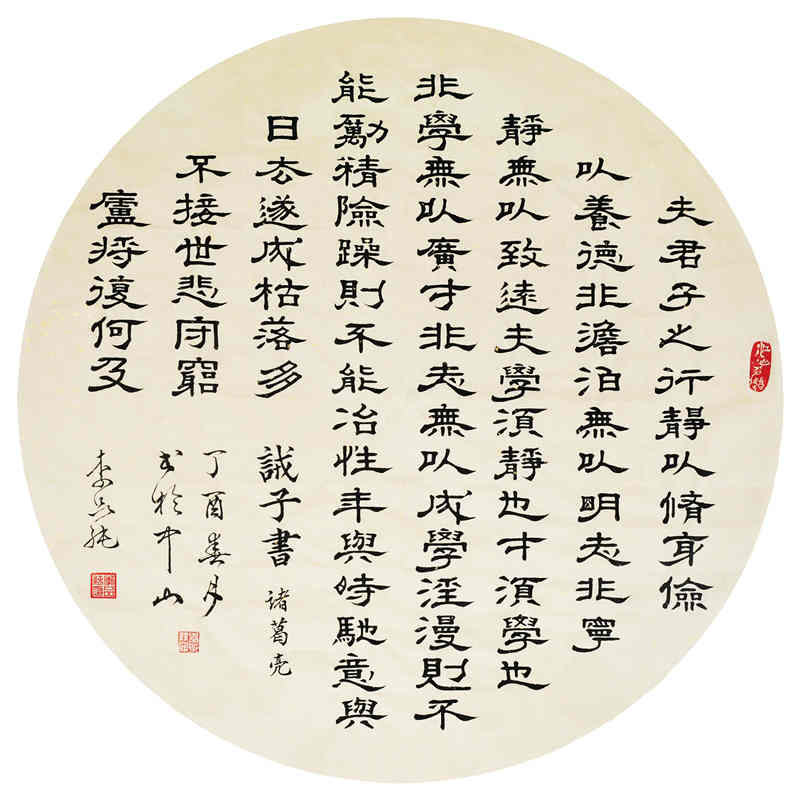 夫君子之行靜以脩身儉
以養德非澹泊無以明志非寧
靜無以致遠夫學須靜也才須學也
非學無以廣才非志無以成學淫漫則不
能勵精險躁則不能冶性年與時馳意與
日去遂成枯落多
不接世悲守窮
廬將復何及
誡子書 諸葛亮
丁酉春月
書於中山
李